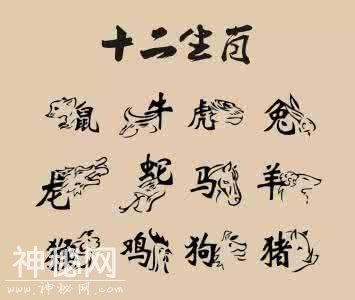 十二生肖
鼠 牛 虎 兔
龙 蛇 马 羊
猴 鸡 狗 猪
神秘网
www.神秘网.com